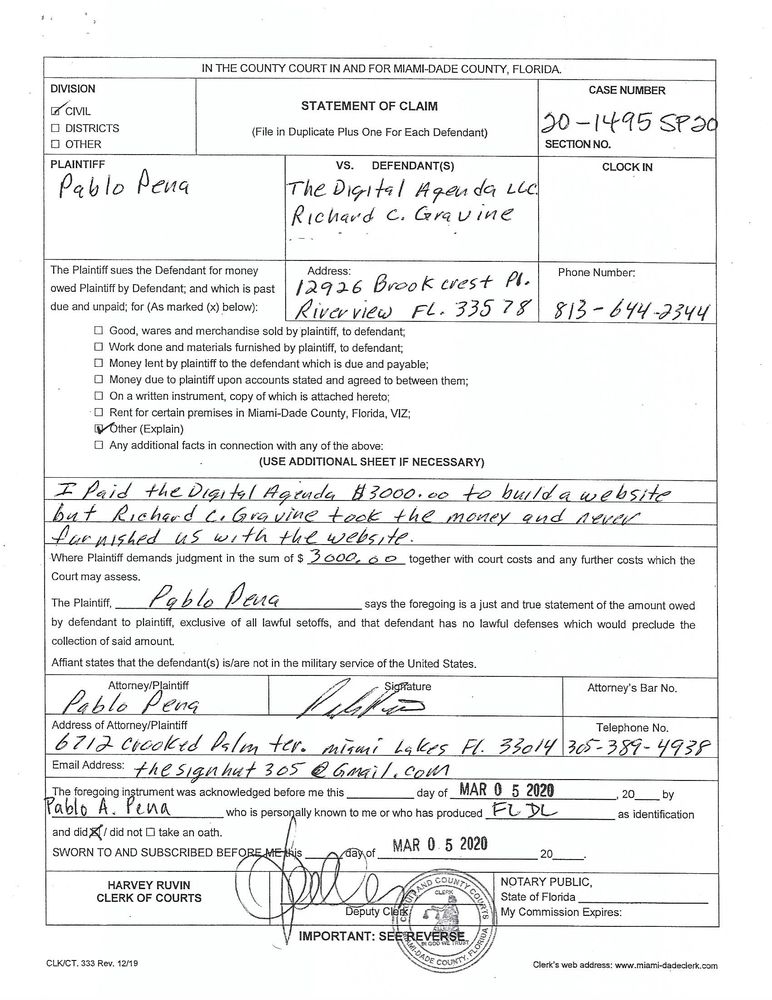 IN THE COUNTY COURT IN AND FOR MIAMI-DADE COUNTY, FLORIDA.
DIVISION
CIVIL
DISTRICTS
OTHER
STATEMENT OF CLAIM
(File in Duplicate Plus One For Each Defendant)
CASE NUMBER
20-1495 SP20
SECTION NO.
PLAINTIFF
Pablo Pena
VS. DEFENDANT(S)
The Digital Agenda LLC.
Richard C. Gravine
CLOCK IN
The Plaintiff sues the Defendant for money
owed Plaintiff by Defendant; and which is past
due and unpaid; for (As marked (x) below):
Address:
12926 Brookcrest Pl.
Riverview FL. 33578
Phone Number:
813-644-2344
Good, wares and merchandise sold by plaintiff, to defendant;
Work done and materials furnished by plaintiff, to defendant;
Money lent by plaintiff to the defendant which is due and payable;
Money due to plaintiff upon accounts stated and agreed to between them;
On a written instrument, copy of which is attached hereto;
Rent for certain premises in Miami-Dade County, Florida, VIZ;
Other (Explain)
Any additional facts in connection with any of the above:
(USE ADDITIONAL SHEET IF NECESSARY)
I Paid the Digital Agenda $3000.00 to build a website
but Richard C. Gravine took the money and never
furnished us with the website.
Where Plaintiff demands judgment in the sum of $ 3000.00 together with court costs and any further costs which the
Court may assess.
The Plaintiff, Pablo Pena says the foregoing is a just and true statement of the amount owed
by defendant to plaintiff, exclusive of all lawful setoffs, and that defendant has no lawful defenses which would preclude the
collection of said amount.
Affiant states that the defendant(s) is/are not in the military service of the United States.
Attorney/Plaintiff
Pablo Pena
Signature
Attorney's Bar No.
Address of Attorney/Plaintiff
6712 crooked Palm ter. miami Lakes Fl. 33014
Telephone No.
305-389-4938
Email Address: thesignhut305@Gmail.com
The foregoing instrument was acknowledged before me this day of MAR 05 2020, 20 by
Pablo A. Pena who is personally known to me or who has produced FL DL as identification
and did / did not take an oath.
SWORN TO AND SUBSCRIBED BEFORE ME this day of MAR 05 2020 20 .
HARVEY RUVIN
CLERK OF COURTS
Deputy Clerk
NOTARY PUBLIC,
State of Florida
My Commission Expires:
IMPORTANT: SEE REVERSE
CLK/CT. 333 Rev. 12/19
Clerk's web address: www.miami-dadeclerk.com